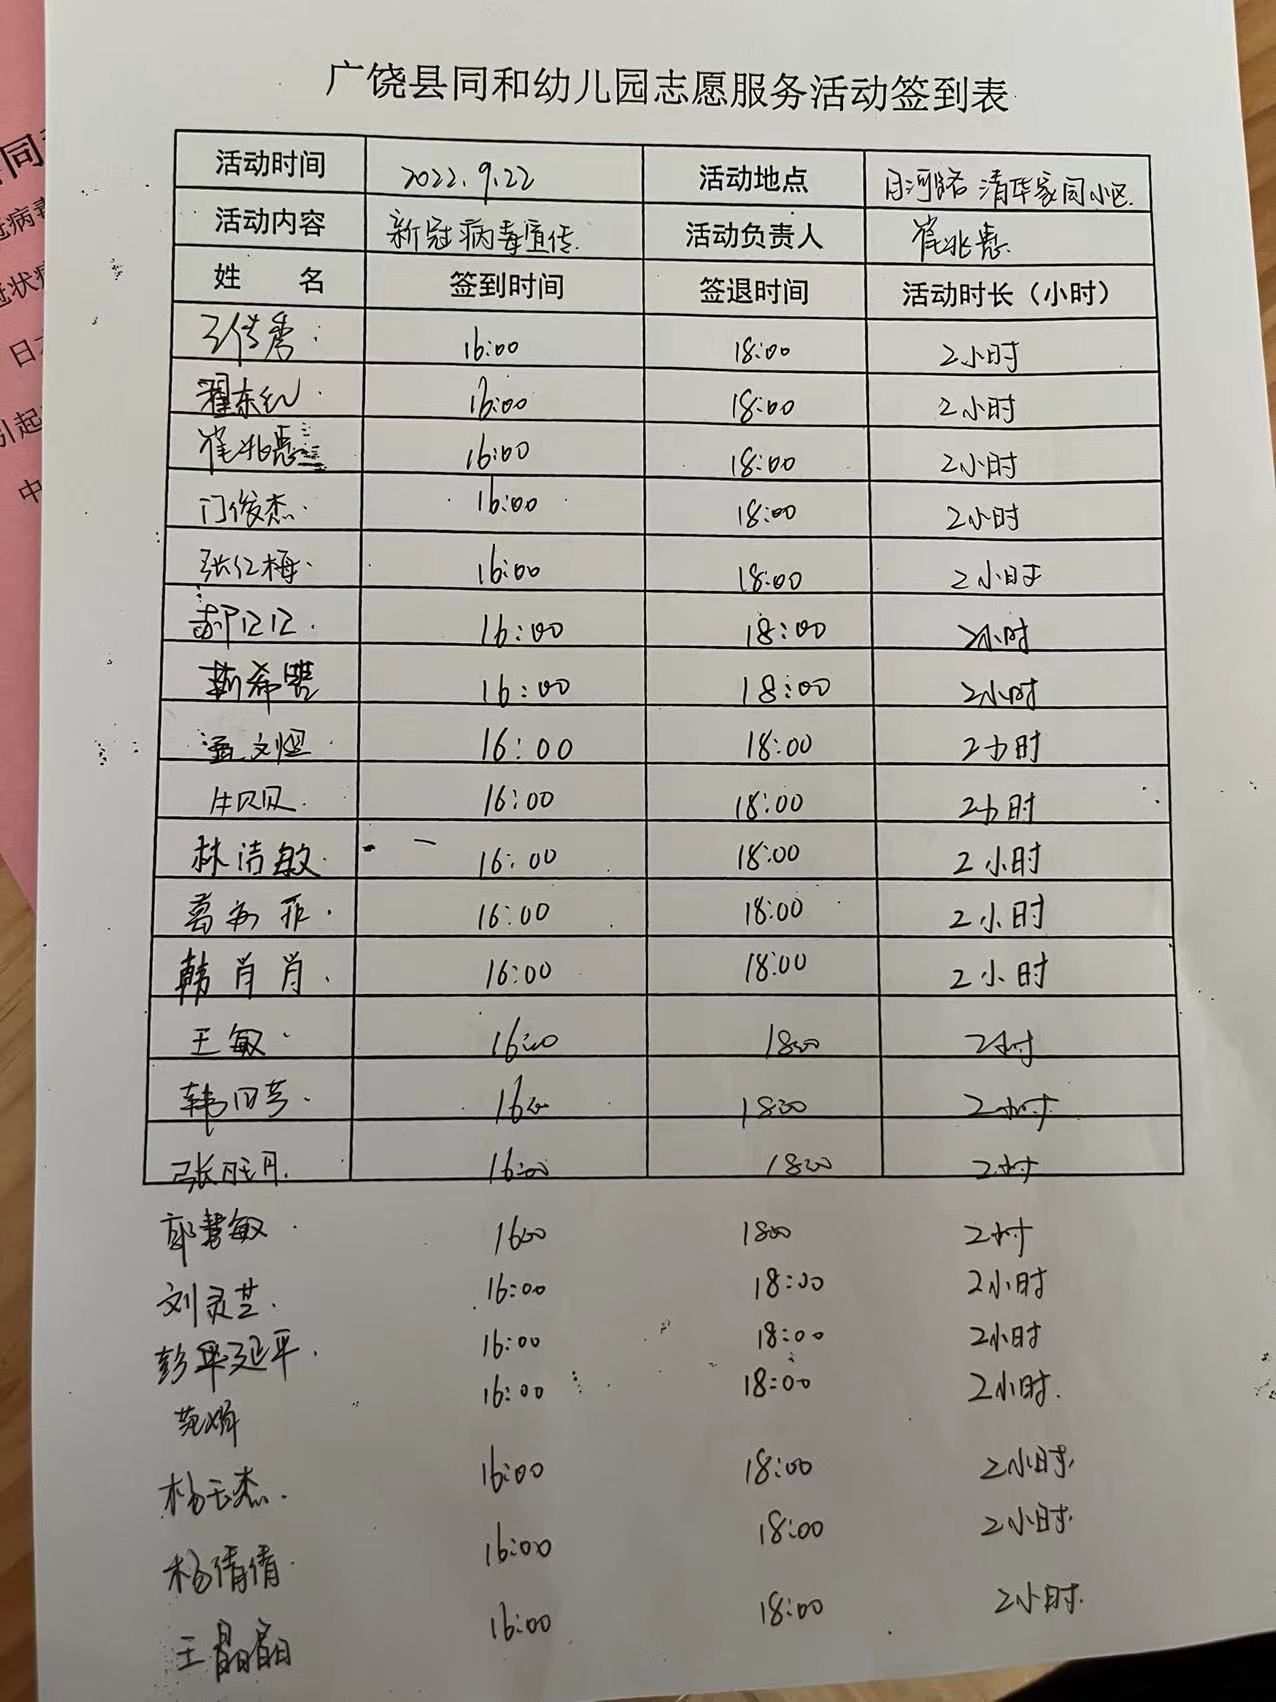 广饶县同和幼儿园志愿服务活动签到表
活动时间 2022.9.22 活动地点 月河路 清华家园小区
活动内容 新冠病毒宣传 活动负责人 崔兆慧
姓 名 签到时间 签退时间 活动时长（小时）
王传秀 16:00 18:00 2小时
翟东红 16:00 18:00 2小时
崔兆慧 16:00 18:00 2小时
门俊杰 16:00 18:00 2小时
张红梅 16:00 18:00 2小时
16:00 18:00 2小时
靳希 16:00 18:00 2小时
16:00 18:00 2小时
牛贝贝 16:00 18:00 2小时
林洁敏 16:00 18:00 2小时
葛 菲 16:00 18:00 2小时
韩肖肖 16:00 18:00 2小时
王敏 16:00 18:00 2小时
韩 芳 16:00 18:00 2小时
张旺月 16:00 18:00 2小时
郭慧敏 16:00 18:00 2小时
刘灵芝 16:00 18:00 2小时
彭 延平 16:00 18:00 2小时
范娟 16:00 18:00 2小时
杨玉杰 16:00 18:00 2小时
杨倩倩 16:00 18:00 2小时
王晶晶 16:00 18:00 2小时
同
冠病毒
冠状病
日本
引起
中